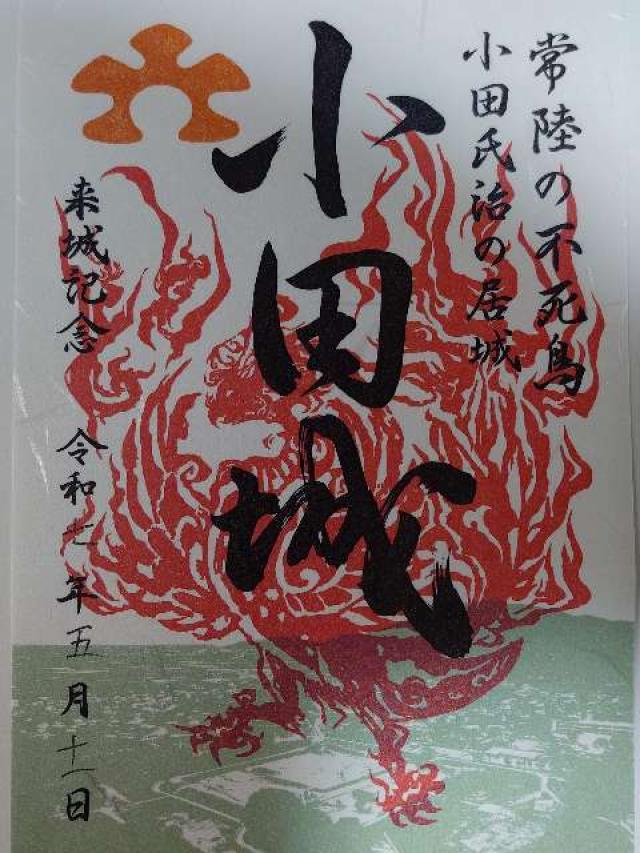 常陸の不死鳥
小田氏治の居城
小田城
来城記念 令和七年五月十一日